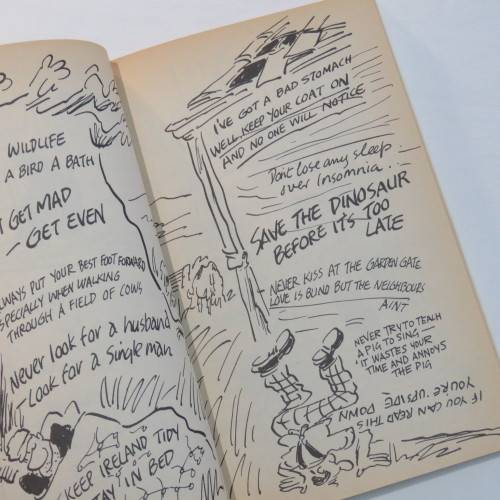 WILDLIFE
A BIRD A BATH
GET MAD
– GET EVEN
ALWAYS PUT YOUR BEST FOOT FORWARD
ESPECIALLY WHEN WALKING
THROUGH A FIELD OF COWS
Never look for a husband
look for a single man
KEEP IRELAND TIDY
STAY IN BED
I'VE GOT A BAD STOMACH
WELL, KEEP YOUR COAT ON
AND NO ONE WILL NOTICE
Don't lose any sleep
over Insomnia
SAVE THE DINOSAUR
BEFORE IT'S TOO
LATE
NEVER KISS AT THE GARDEN GATE
LOVE IS BLIND BUT THE NEIGHBOURS
AIN'T
NEVER TRY TO TEACH
A PIG TO SING —
IT WASTES YOUR
TIME AND ANNOYS
THE PIG
IF YOU CAN READ THIS
YOU'RE UPSIDE
DOWN